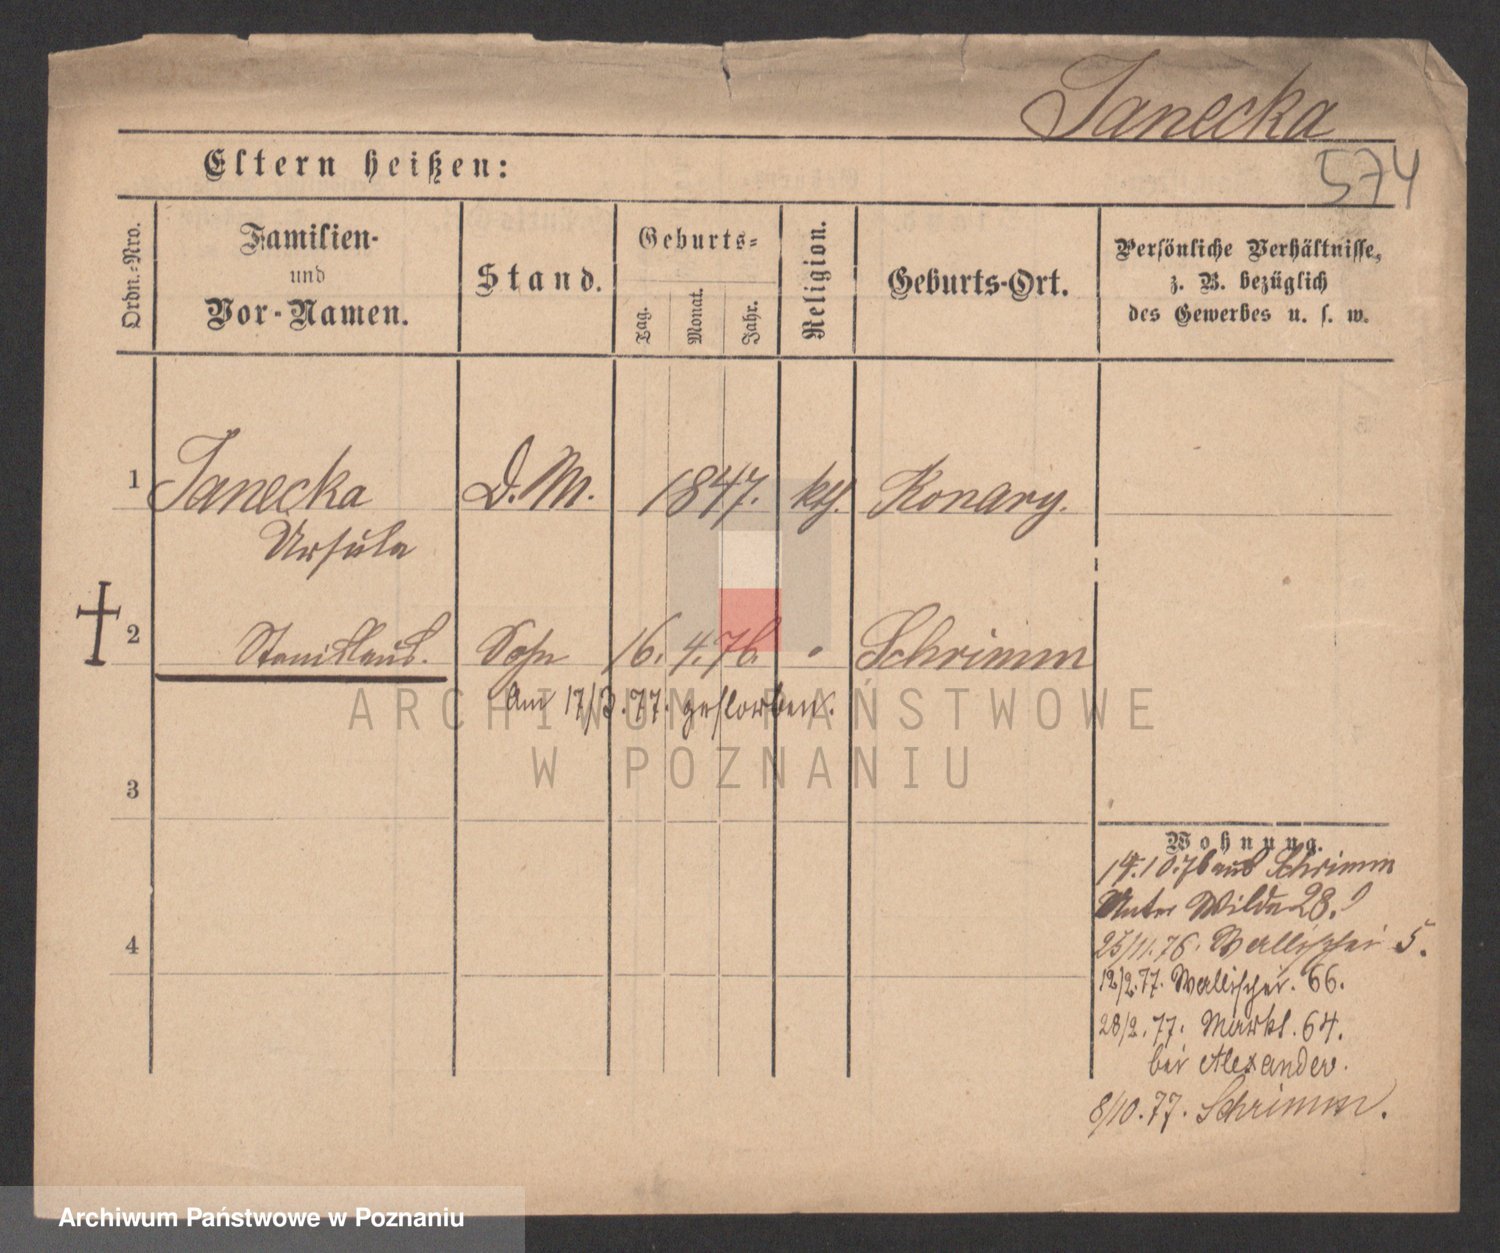 Janecka
574
Eltern heißen:
Ordn.-Nro.
Familien-
und
Vor-Namen.
Stand.
Geburts-
Tag.
Monat.
Jahr.
Religion.
Geburts-Ort.
Persönliche Verhältnisse,
z. B. bezüglich
des Gewerbes u. s. w.
1 Janecka D. M. 1847. kth. Konary.
Ursula
2 Stanislaus. Sohn 16. 4. 76. " Schrimm
Am 17/3.77. gestorben.
ARCHIWUM PAŃSTWOWE
W POZNANIU
3
Wohnung.
14.10.76 aus Schrimm
Unter Wilda 28.
4
25/11.76. Wallischei 5.
12/2.77. Wallischei. 66.
28/2.77. Markt. 64.
bei Alexander.
8/10.77. Schrimm.
Archiwum Państwowe w Poznaniu